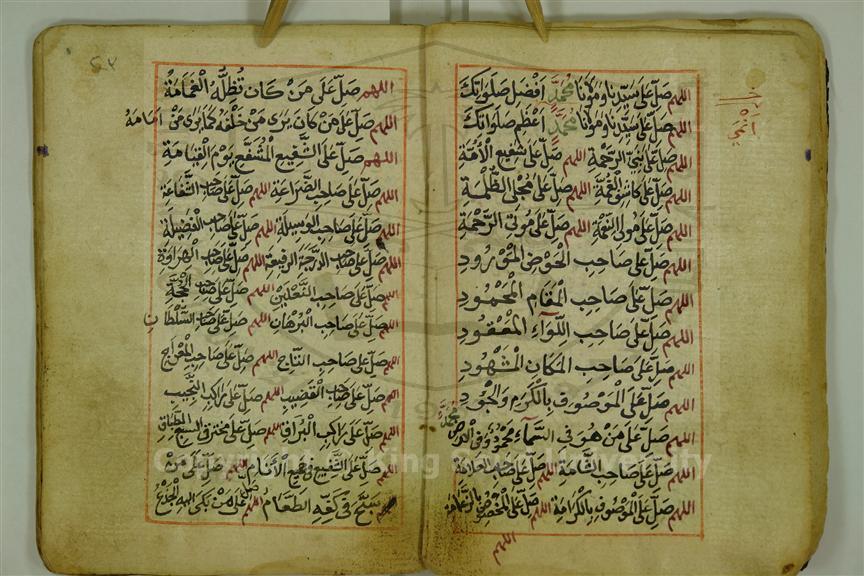 اللهم صل على سيدنا ومولانا محمد افضل صلواتك
اللهم صل على سيدنا ومولانا محمد اعظم صلواتك
اللهم صل على نبي الرحمة اللهم صل على شفيع الأمة
اللهم صل على كاشف الغمة اللهم صل على مجلي الظلمة
اللهم صل على مولي النعمة اللهم صل على موتي الرحمة
اللهم صل على صاحب الحوض المورود
اللهم صل على صاحب المقام المحمود
اللهم صل على صاحب اللواء المعقود
اللهم صل على صاحب المكان المشهود
اللهم صل على الموصوف بالكرم والجود
اللهم صل على من هو في السماء محمود وفي الارض محمد
اللهم صل على صاحب الشامة اللهم صل على صاحب العلامة
اللهم صل على الموصوف بالكرامة اللهم صل على المخصوص بالزعامة
اللهم
اللهم صل على من كان تظله الغمامة
اللهم صل على من كان يرى من خلفه كما يرى من امامه
اللهم صل على الشفيع المشفع يوم القيامة
اللهم صل على صاحب الضراعة اللهم صل على صاحب الشفاعة
اللهم صل على صاحب الوسيلة اللهم صل على صاحب الفضيلة
اللهم صل على صاحب الدرجة الرفيعة اللهم صل على صاحب الهراوة
اللهم صل على صاحب النعلين اللهم صل على صاحب الحجة
اللهم صل على صاحب البرهان اللهم صل على صاحب السلطان
اللهم صل على صاحب التاج اللهم صل على صاحب المعراج
اللهم صل على صاحب القضيب اللهم صل على راكب النجيب
اللهم صل على راكب البراق اللهم صل على مخترق السبع الطباق
اللهم صل على الشفيع في جميع الأنام اللهم صل على من
سبح في كفه الطعام اللهم صل على من بكى اليه الجذع
Copyright © King Saud University